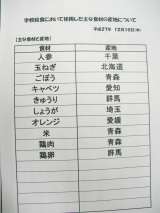 学校給食において使用した主な食材の産地について
平成27年 12月16日(水)
(主な食材と産地)
食材 産地
人参 千葉
玉ねぎ 北海道
ごぼう 青森
キャベツ 愛知
きゅうり 群馬
しょうが 高知
オレンジ 愛媛
米 青森
鶏肉 青森
鶏卵 群馬